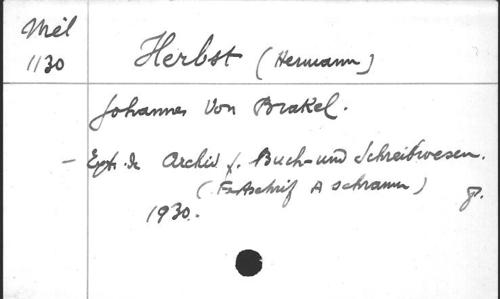 Mél
1130
Herbst (Hermann)
Johannes Von Brakel.
– Ext. de Archiv f. Buch- und Schreibwesen.
(Festschrif A Schramm)
1930.